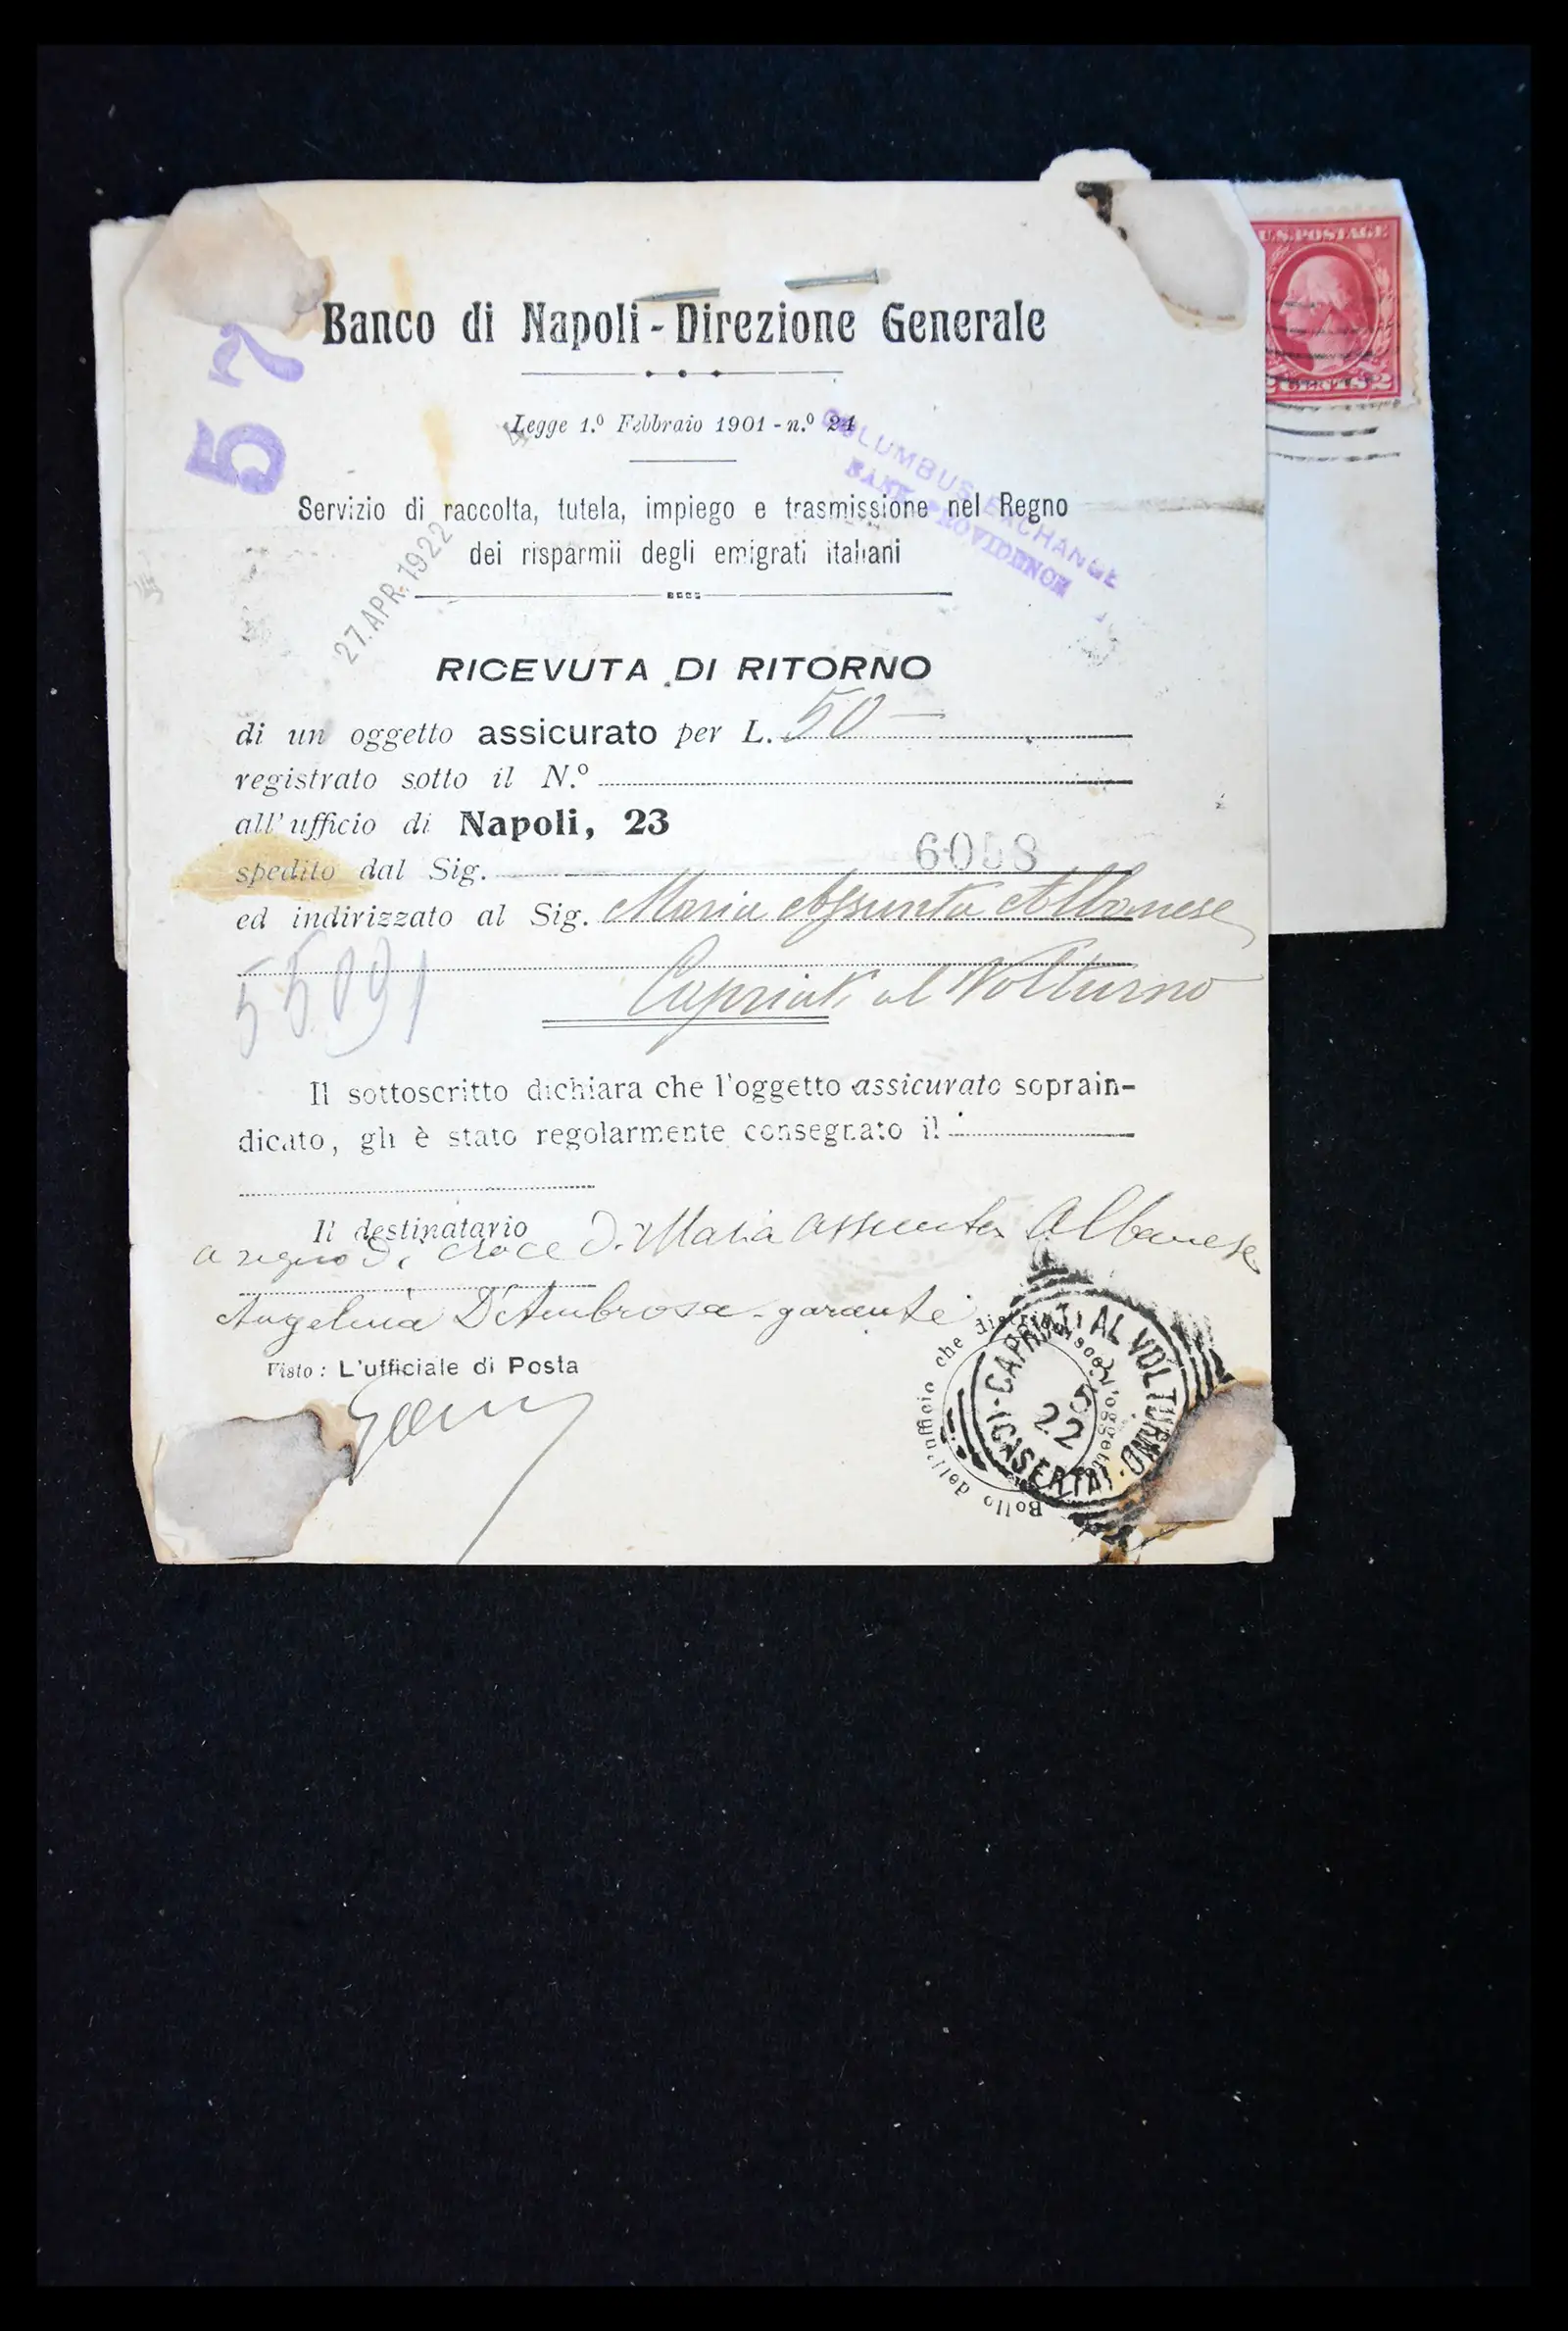 U.S. POSTAGE
2 CENTS 2
57
Banco di Napoli - Direzione Generale
Legge 1.º Febbraio 1901 - n.º 24
COLUMBUS EXCHANGE
BANK PROVIDENCE
Servizio di raccolta, tutela, impiego e trasmissione nel Regno
dei risparmii degli emigrati italiani
27. APR. 1922
RICEVUTA DI RITORNO
di un oggetto assicurato per L. 50 —
registrato sotto il N.º
all'ufficio di Napoli, 23
6058
spedito dal Sig.
ed indirizzato al Sig. Maria Assunta Albanese
55091
Capriati al Volturno
Il sottoscritto dichiara che l'oggetto assicurato soprain-
dicato, gli è stato regolarmente consegnato il
Il destinatario
a segno di croce di Maria Assunta Albanese
Angelina D'Ambrosa - garante
Visto: L'ufficiale di Posta
Bollo dell'ufficio che distribuisce l'oggetto
CAPRIATI AL VOLTURNO
22
(CASERTA)